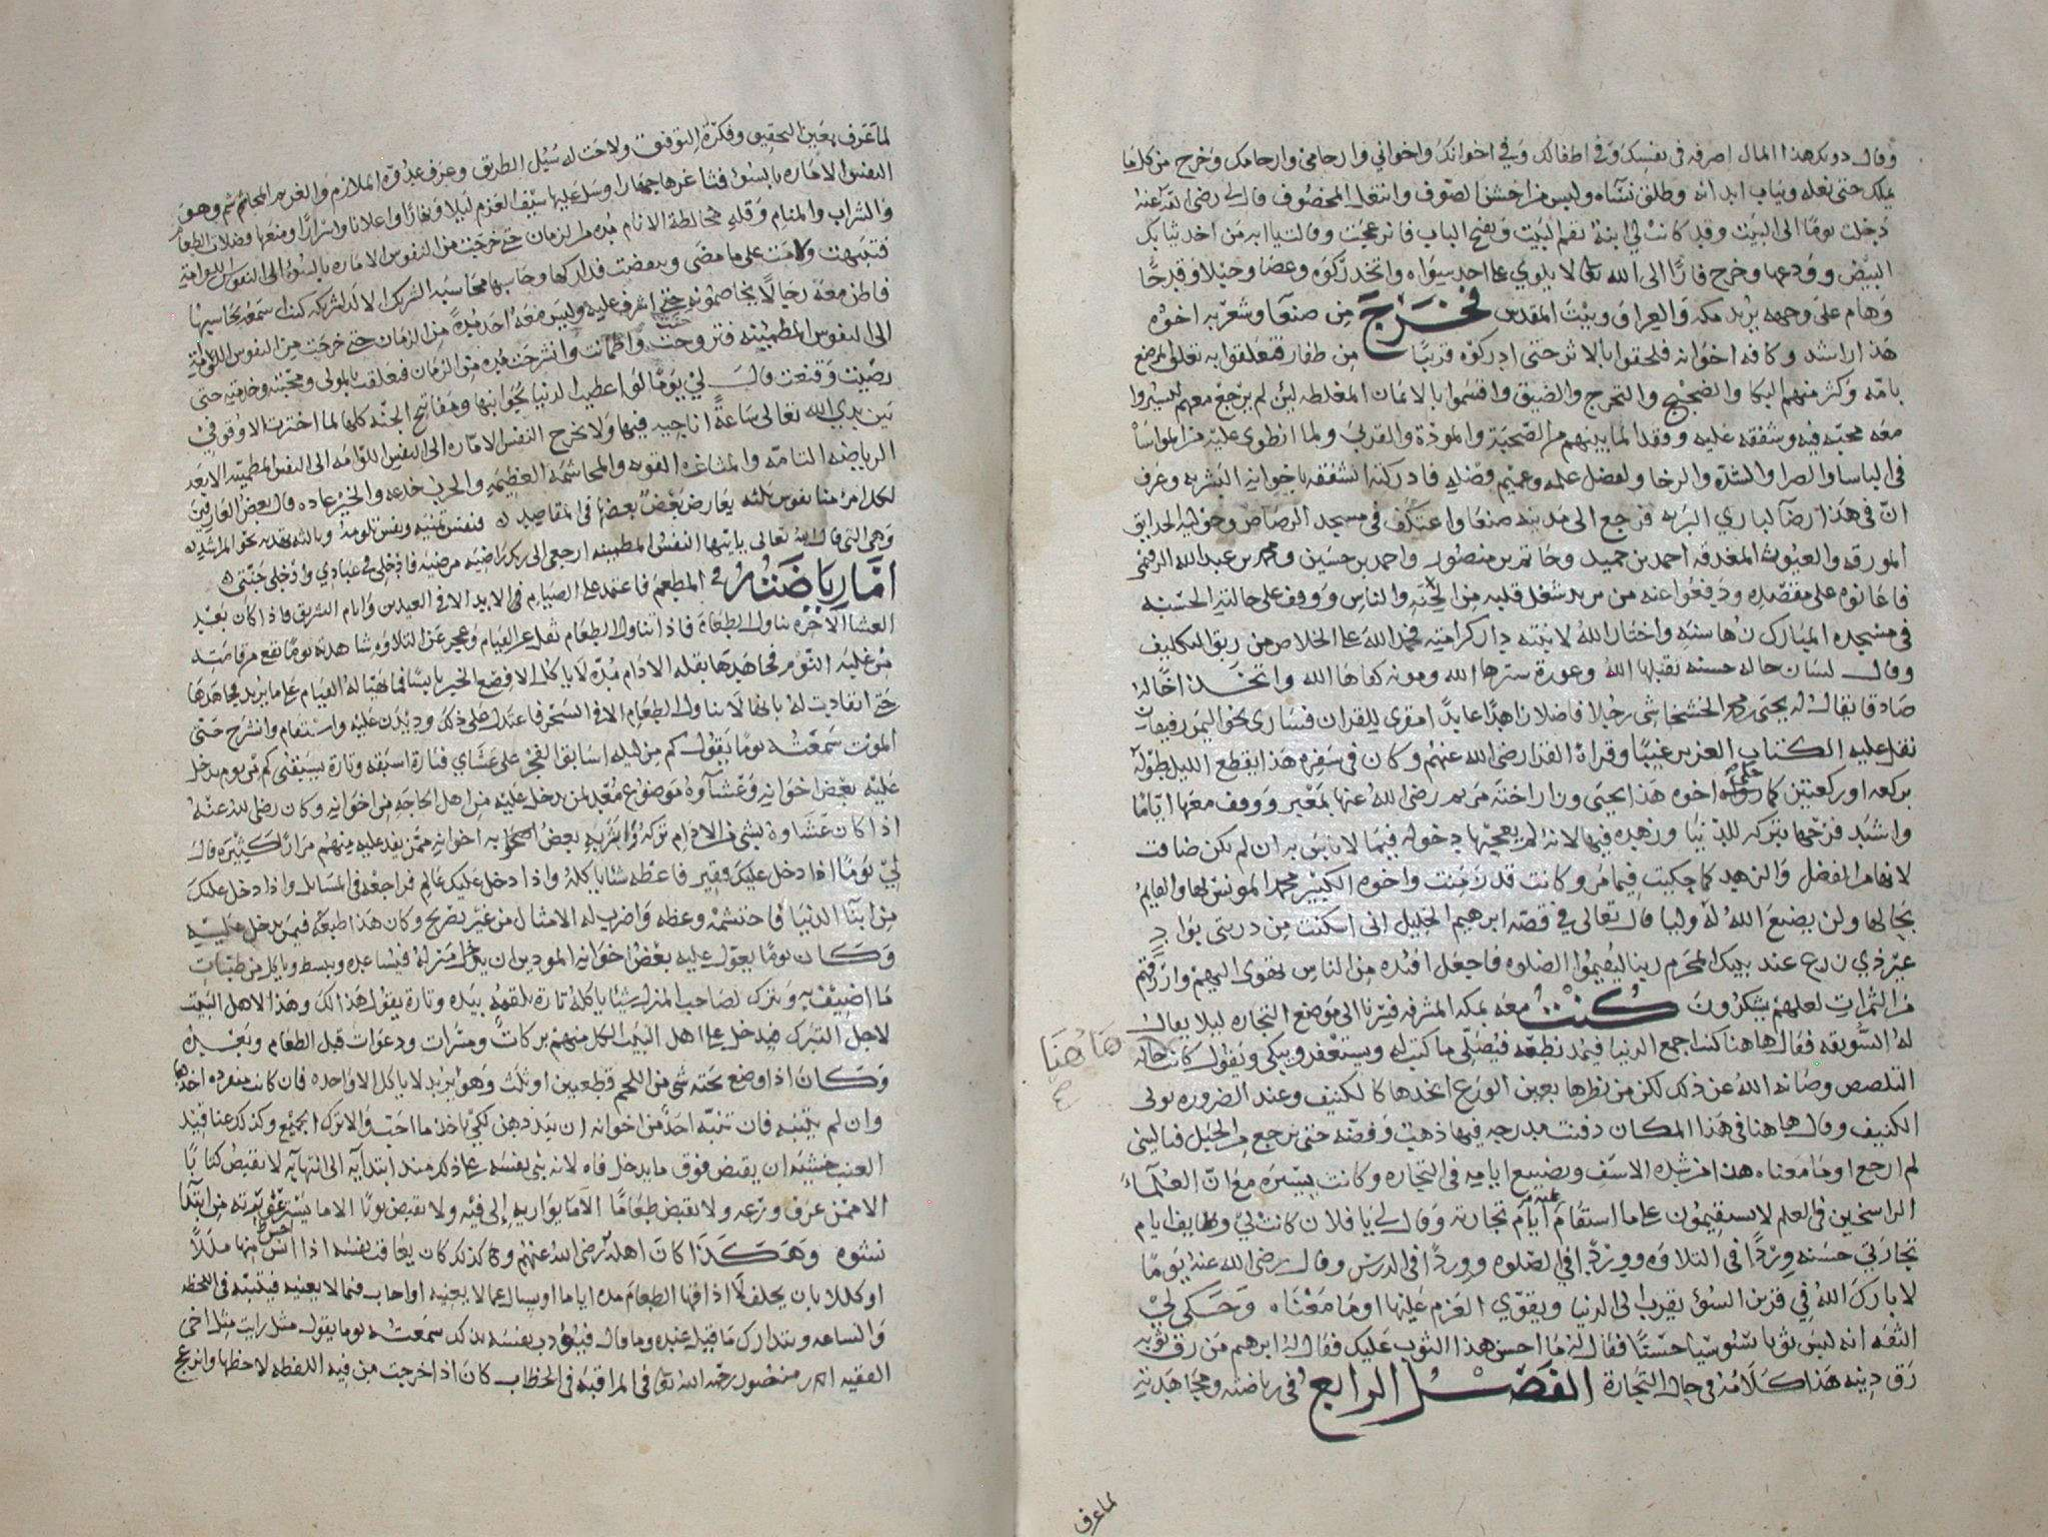 وقال دونك هذا المال اصرفه في نفسك وفي اطفالك وفي اخوانك واخواني وارحامي وارحامك وخرج من كل ما
يملك حتى نعله وثياب ابدانه وطلق نساه ولبس من اخشن الصوف وانتعل المخصوف قال لي رضي الله عنه
دخلت يوما الى البيت وقد كانت لي ابنة تقم البيت وتفتح الباب فانزعجت وقالت يا ابه من اخذ ثيابك
البيض وودعها وخرج فارا الى الله تعالى لا يلوي على احد سواه واتخذ ركوه وعصا وحبلا وقدحا
وهام على وجهه يريد مكه والعراق وبيت المقدس فخرج من صنعا وشعر به اخوه
هذا راشد وكافه اخوانه فلحقوا بالاثر حتى ادركوه قريبا من ظفار فتعلقوا به تعلق المرضع
بامه وكثر منهم البكا والضجيج والتحرج والضيق واقسموا بالايمان المغلظه لئن لم يرجع معهم ليسيروا
معه محبه فيه وشفقه عليه وفقدا لما بينهم من الصحبة والمودة والقربى ولما انطوى عليه من المواساه
في الباسا والضرا والشدة والرخا ولفضل علمه وعميم فضله فادركته الشفقه باخوانه البشريه وعرف
ان في هذا رضا لباري البريه فرجع الى مدينه صنعا واعتكف في مسجد الرصاص وحواليه الحدايق
المورقه والعيون المغدقه احمد بن حميد وحاتم بن منصور واحمد بن حسين ومحمد بن عبدالله الرقيمي
فاعانوه على مقصده ودفعوا عنه من يريد شغل قلبه من الجنه والناس ووقف على حالته الحسنه
في مسجده المبارك زها سنه واختار الله لابنته دار كرامته فحمد الله على الخلاص من ربق التكليف
وقال لسان حاله حسنه تقبلها الله وعورة سترها الله ومونه كفاها الله واتخذ اخا له
صادقا يقال له يحيى الخشخاشي رجلا فاضلا زاهدا عابدا مقري للقران فسارا نحو اليمن رفيقان
نقل عليه الكتاب العزيز غيبا وقراة القرا رضي الله عنهم وكان في سفره هذا يقطع الليل بطوله
بركعه او ركعتين كما رواه اخوه هذا يحيى وزار اخته مريم رضي الله عنها بمغبر ووقف معها اياما
واشتد فرحها بتركه للدنيا وزهده فيها لانه لم يعجبها دخوله فيما لا باس به ان لم يكن ضاقت
لانها من الفضل والزهد كما حكيت فيما مر وكانت قد زمنت واخوه الكبير محمد المونس لها والقايم
بحالها ولن يضيع الله له وليا قال تعالى في قصه ابرهيم الخليل اني اسكنت من ذريتي بواد
غير ذي زرع عند بيتك المحرم ربنا ليقيموا الصلوه فاجعل افئده من الناس تهوى اليهم وارزقهم
من الثمرات لعلهم يشكرون كنت معه بمكه المشرفه فسرنا الى موضع التجاره ليلا يقال
له السويقه فقال ها هنا كنت اجمع الدنيا فيمد نطعه فيصلي ما كتب له ويستغفر ويبكي ويقول كانت حاله
التلصص وصانه الله عن ذلك لكن من نظرها بعين الورع اتخذها كالكنيف وعند الضروره يولي
الكنيف وقال ها هنا في هذا المكان دفنت مدرجه فيها ذهب وفضه حتى نرجع من الجبل فياليتني
لم ارجع او ما معناه هذا من شده الاسف وتضييع ايامه في التجاره وكانت يسيره مع ان العلماء
الراسخين في العلم لا يستقيمون على ما استقام عليه ايام تجارته وقال لي يا فلان كانت لي وظايف ايام
تجارتي حسنه وردا في التلاوه ووردا في الصلوه ووردا في الدرس وقال رضي الله عنه يوما
لا بارك الله في قرين السؤ يقرب الى الدنيا ويقوي العزم عليها او ما معناه وحكى لي
الثقه انه لبس ثوبا سوسيا حسنا فقال له ما احسن هذا الثوب عليك فقال له ابرهيم من رق ثوبه
رق دينه هذا كلامه في حال التجارة الفصل الرابع في رياضته ومجاهدته
ها هنا
لما عرف
لما عرف بعين التحقيق وفكرة التوفيق ولاحت له سبل الطريق وعرف عدوه الملازم والغريم المجاثم شم وهو
النفس الامارة بالسوء فشاغرها جهارا وسل عليها سيف العزم ليلا ونهارا واعلانا واسرارا ومنعها فضلات الطعام
والشراب والمنام وقله مخالطة الانام مده من الزمان حتى خرجت من النفوس الاماره بالسوء الى النفوس اللوامة
فتنبهت ولامت على ما مضى فداركها وحاسبها محاسبه الشريك الالد لشريكه كنت اسمعه يحاسبها
فاظن معه رجالا يخاصمونه حتى اشرف عليه وليس معه احد مدة من الزمان حتى خرجت من النفوس اللوامة
الى النفوس المطمئينه فتروحت واطمانت وانشرحت مده من الزمان فتعلقت بالمولى ومحبته وخدمته حتى
رضيت وقنعت قال لي يوما لو اعطيت الدنيا بجوانبها ومفاتيح الجنه كلها لما اخترت الا وقوفي
بين يدي الله تعالى ساعة اناجيه فيها ولا تخرج النفس الاماره الى النفس اللوامه الى النفس المطمئنه الا بعد
الرياضه التامه والمشاغره القويه والمجاشمه العظيمه والحرب خدعه والخير عاده قال بعض العارفين
لكل امرء منا نفوس ثلثه يعارض بعض بعضها في المقاصد فنفس تمنيه ونفس تلومه وثالثه تهديه نحو المراشد
وهي التي قال الله تعالى يا ايتها النفس المطمئنه ارجعي الى ربك راضيه مرضيه فادخلي في عبادي وادخلي جنتي
اما رياضته في المطعم فاعتمد على الصيام في الابد الا في العيدين وايام التشريق فاذا كان بعيد
العشا الاخره تناول الطعام فاذا تناول الطعام ثقل عن القيام وعجز عن التلاوه شاهدته يوما يقع من قامته
من غلبه النوم فجاهدها بقله الادام مده لا ياكل الا قرص الخبز يابسا فما تهيا له القيام على ما يريد فجاهدها
حتى انقادت له بانها لا تناول الطعام الا في السحر فاعتدل على ذلك وديدن عليه واستقام وانشرح حتى
الموت سمعته يوما يقول كم من ليله اسابق الفجر على عشاي فتارة اسبقه وتارة يسبقني كم من يوم يدخل
عليه بعض اخوانه وعشاوه موضوع معد لمن يدخل عليه من اهل الحاجه من اخوانه وكان رضي الله عنه
اذا كان عشاوه بشي من الادام تركه واثر به بعض اخوانه ممن يفد عليه منهم مرارا كثيره قال
لي يوما اذا دخل عليك فقير فاعطه شيئا ياكله واذا دخل عليك عالم فراجعه في المسايل واذا دخل عليك
من ابنا الدنيا فاحتشمه وعظه واضرب له الامثال من غير تصريح وكان هذا طبعه فيمن يدخل عليه
وكان يوما يعول عليه بعض اخوانه المودين ان يدخل منزله فيساعده ويبسط وياكل من طيبات
ما اضيف به ويترك لصاحب المنزل شيئا ياكله تارة يلقمه بيده وتارة يقول هذا لك وهذا لاهل البيت
لاجل التبرك فيدخل على اهل البيت الكل منهم بركات ومسرات ودعوات قبل الطعام وبعيده
وكان اذا وضع تحته شي من اللحم قطعتين او ثلث وهو يريد لا ياكل الا واحده فان كانت منفرده اخذها
وان لم يثنيه فان تنبه احد من اخوانه ان يبدد هن لكي ياخذ ما احب والا ترك الجميع وكذلك عناقيد
العنب خشيه ان يقبض فوق ما يدخل فاه لانه بنى نفسه على ذلك منذ ابتدايه الى انتهايه لا يقبض كتابا
الا ممن عرف ورعه ولا يقبض طعاما الا ما يواريه الى فيه ولا يقبض ثوبا الا ما يستر عورته من ابتدا
نشوه وهكذا كان اهله رضي الله عنهم وكذلك كان يعاقب نفسه اذا احس منها مللا
او كللا بان يحلف لا اذاقها الطعام مده اياما او يسال عما لا يعنيه او اجاب فيما لا يعنيه فيثبته في اللحظه
والساعه ويتدارك ما قبل عنده وما قال فيؤدب نفسه بذلك سمعته يوما يقول مثل رايت مثل اخي
الفقيه منصور رحمه الله تعالى في المراقبه في الخطاب كان اذا خرجت من فيه اللفظه لاحظها وانزعج